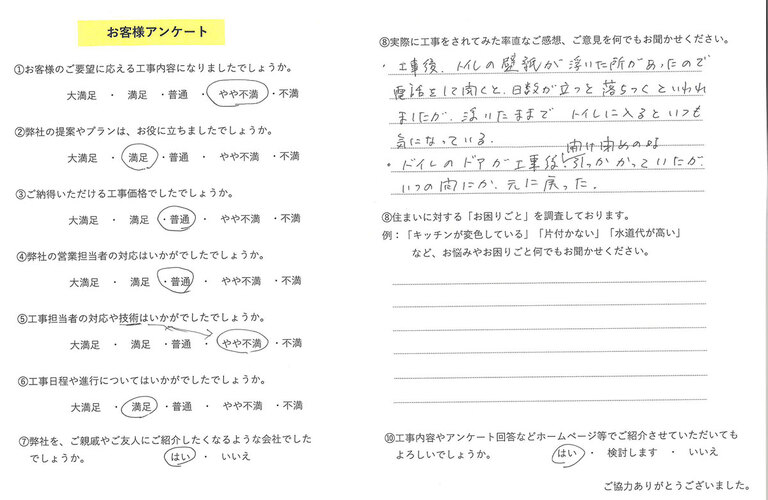 お客様アンケート
①お客様のご要望に応える工事内容になりましたでしょうか。
大満足 ・ 満足 ・普通 ・ やや不満 ・不満
②弊社の提案やプランは、お役に立ちましたでしょうか。
大満足 ・ 満足 ・普通 ・ やや不満 ・ 不満
③ご納得いただける工事価格でしたでしょうか。
大満足 ・ 満足 ・普通 ・ やや不満 ・ 不満
④弊社の営業担当者の対応はいかがでしたでしょうか。
大満足 ・ 満足 ・普通 ・ やや不満 ・ 不満
⑤工事担当者の対応や技術はいかがでしたでしょうか。
大満足 ・ 満足 ・普通 ・ やや不満 ・不満
⑥工事日程や進行についてはいかがでしたでしょうか。
大満足 ・ 満足 ・普通 ・ やや不満 ・ 不満
⑦弊社を、ご親戚やご友人にご紹介したくなるような会社でした
でしょうか。 はい ・ いいえ
⑧実際に工事をされてみた率直なご感想、ご意見を何でもお聞かせください。
・工事後、トイレの壁紙が浮いた所があったので
電話をして聞くと、日数が立つと落ちつくといわれ
ましたが、浮いたままで トイレに入るといつも
気になっている.
開け閉めの時
・トイレのドアが工事後引っかかっていたが、
いつの間にか、元に戻った.
⑧住まいに対する「お困りごと」を調査しております。
例：「キッチンが変色している」「片付かない」「水道代が高い」
など、お悩みやお困りごと何でもお聞かせください。
⑩工事内容やアンケート回答などホームページ等でご紹介させていただいても
よろしいでしょうか。 はい ・ 検討します ・ いいえ
ご協力ありがとうございました。